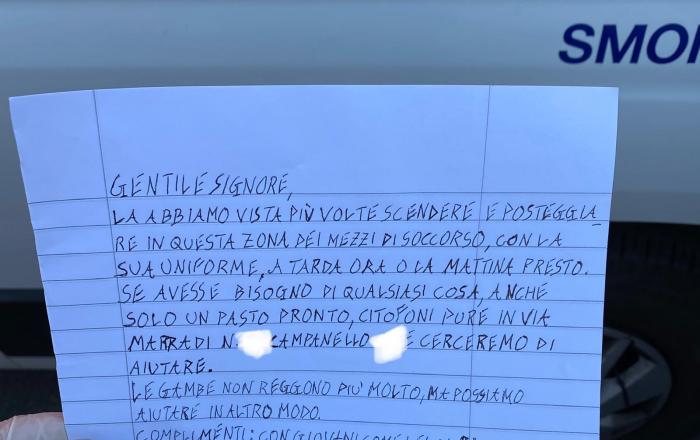 SMO
GENTILE SIGNORE,
LA ABBIAMO VISTA PIÙ VOLTE SCENDERE E POSTEGGIA
RE IN QUESTA ZONA DEI MEZZI DI SOCCORSO, CON LA
SUA UNIFORME, A TARDA ORA O LA MATTINA PRESTO.
SE AVESSE BISOGNO DI QUALSIASI COSA, ANCHE
SOLO UN PASTO PRONTO, CITOFONI PURE IN VIA
MARRADI N CAMPANELLO E CERCEREMO DI
AIUTARE.
LE GAMBE NON REGGONO PIU' MOLTO, MA POSSIAMO
AIUTARE IN ALTRO MODO.
COMPLIMENTI: CON GIOVANI COME LEI